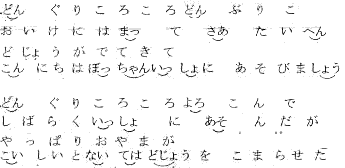 どん ぐ り こ ろ こ ろ どん ぶ り こ
お い け に は まっ て さあ た い へん
ど じょ う が で て き て
こん に ち は ぼっ ちゃん いっ しょ に あ そ び ま しょう
どん ぐ り こ ろ こ ろ よろ こ ん で
し ば ら く いっ しょ に あそ ん だ が
や っ ぱ り お や ま が
こい し い と ない ては どじょ う を こ ま ら せ た